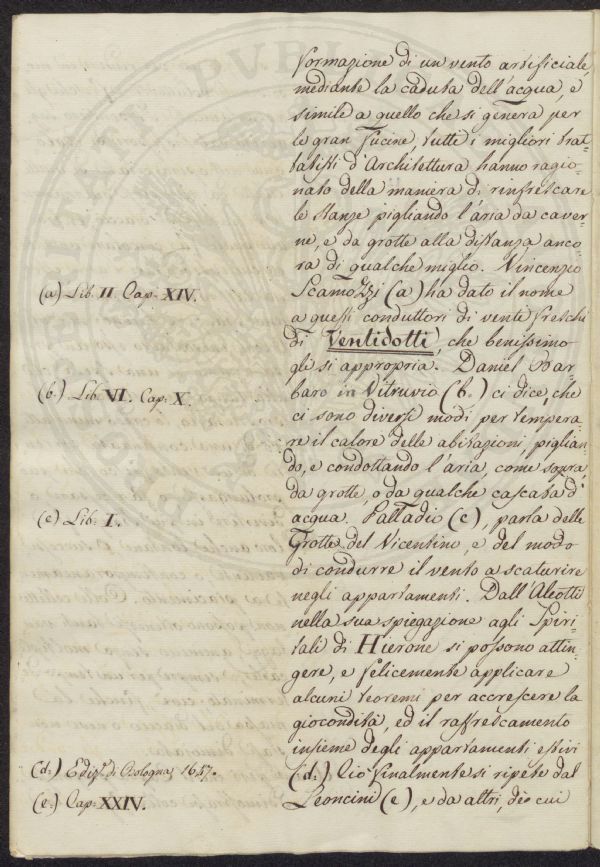 formazione di un vento artificiale,
mediante la caduta dell'acqua, e
simile a quello che si genera per
le gran fucine, tutti i migliori trat-
tatisti d'Architettura hanno ragio-
nato della maniera di rinfrescare
le stanze pigliando l'aria da caver-
ne, e da grotte alla distanza anco-
ra di qualche miglio. Vincenzio
(a) Lib. II. Cap. XIV.
Scamozzi (a) ha dato il nome
a questi conduttori di venti freschi
di Ventidotti, che benissimo
gli si appropria. Daniel Bar-
(b.) Lib. VI. Cap. X.
baro in Vitruvio (b.) ci dice, che
ci sono diversi modi per tempera-
re il calore delle abitazioni, piglian-
do, e condottando l'aria, come sopra,
da grotte, o da qualche cascata d'
(c) Lib: I.
acqua. Palladio (c), parla delle
Grotte del Vicentino, e del modo
di condurre il vento a scaturire
negli appartamenti. Dall'Aleotti
nella sua spiegazione agli Spiri-
tali di Hierone si possono attin-
gere, e felicemente applicare
alcuni teoremi per accrescere la
giocondità, ed il raffrescamento
insieme degli appartamenti estivi
(d.) Ediz. di Bologna 1647.
(d.) Ciò finalmente si ripete dal
(e.) Cap: XXIV.
Leoncini (e), e da altri, di cui
PVBL